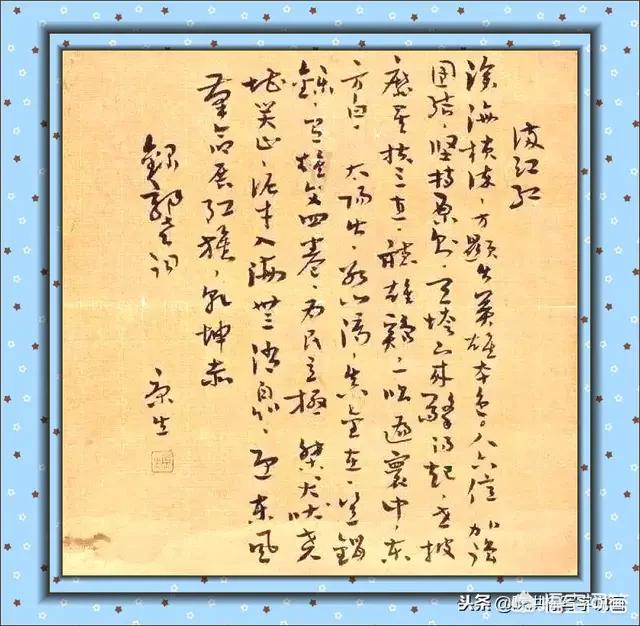 满江红
滄海横流，方顯出英雄本色。人六億，加强
团结，坚持原则，天垮下来擎得起，世披
靡矣扶之直，聽雄鷄一唱遍寰中，东
方白。太陽出，冰山滴，真金在，豈銷
鑠，有雄文四卷，为民立極。桀犬吠尧
堪笑止，泥牛入海無消息，迎东風
革命展红旗，乾坤赤
錄郭老词
康生
头条